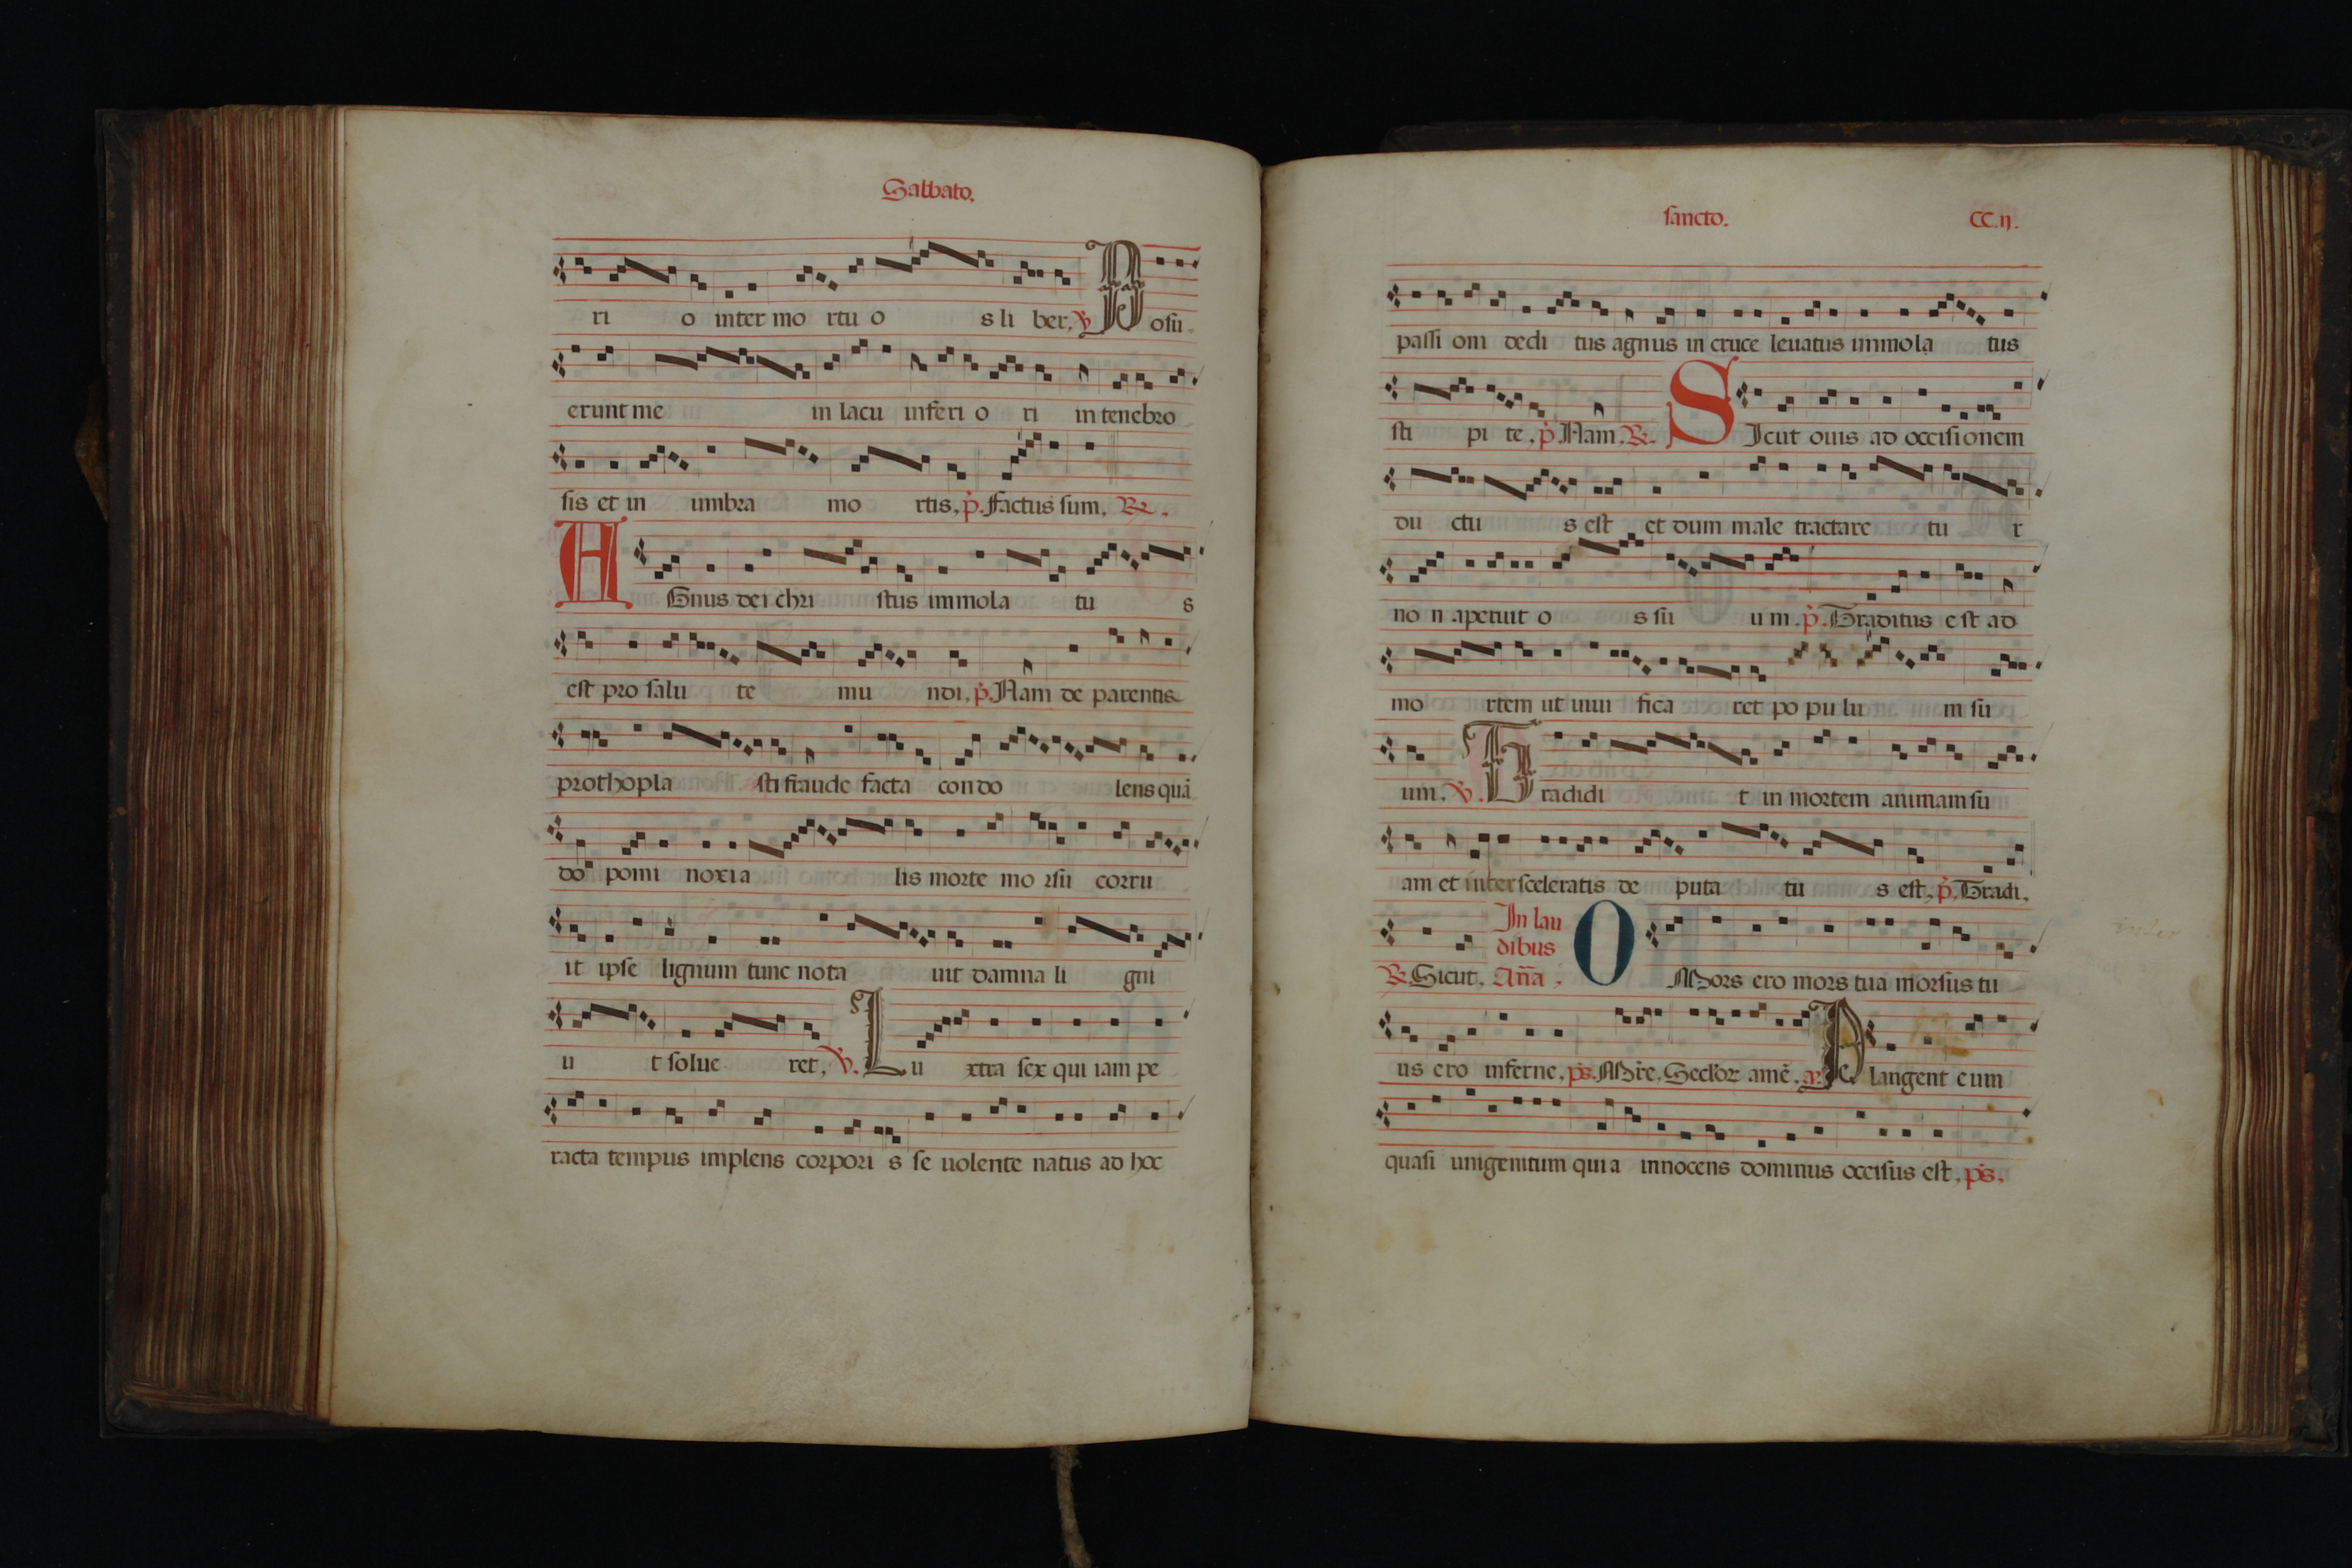 Sabbato.
ri o inter mo rtu o s li ber, ꝟ Posu
erunt me in lacu inferi o ri in tenebro
sis et in umbra mo rtis, p̉. Factus sum, ℟.
AGnus dei chri stus immola tu s
est pro salu te mu ndi, p̉. Nam de parentis
prothopla sti fraude facta condo lens quā
do pomi noxia lis morte mo rsu corru
it ipse lignum tunc nota uit damna li gni
u t solue ret, ꝟ. Iu xtra sex qui iam pe
racta tempus implens corpori s se uolente natus ad hoc
sancto. CC.ij.
passi oni dedi tus agnus in cruce leuatus immola tus
sti pi te, p̉. Nam, ℟. SIcut ouis ad occisionem
du ctu s est et dum male tractare tu r
no n aperuit o s su u m. p̉. Traditus e st ad
mo rtem ut uiui fica ret po pu lu m su
um, ꝟ. Tradidi t in mortem animam su
am et inter sceleratis de puta tu s est, p̉. Tradi,
℟. Sicut. In lau dibus Añа, O Mors ero mors tua morsus tu
us ero inferne, ps. Mr̄e, Seclꝛoꝛ amē. a. Plangent eum
quasi unigenitum quia innocens dominus occisus est, ps,
inter